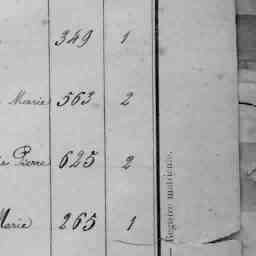 349 1
Marie 563 2
Pierre 625 2
Marie 265 1
— Registre matricule.